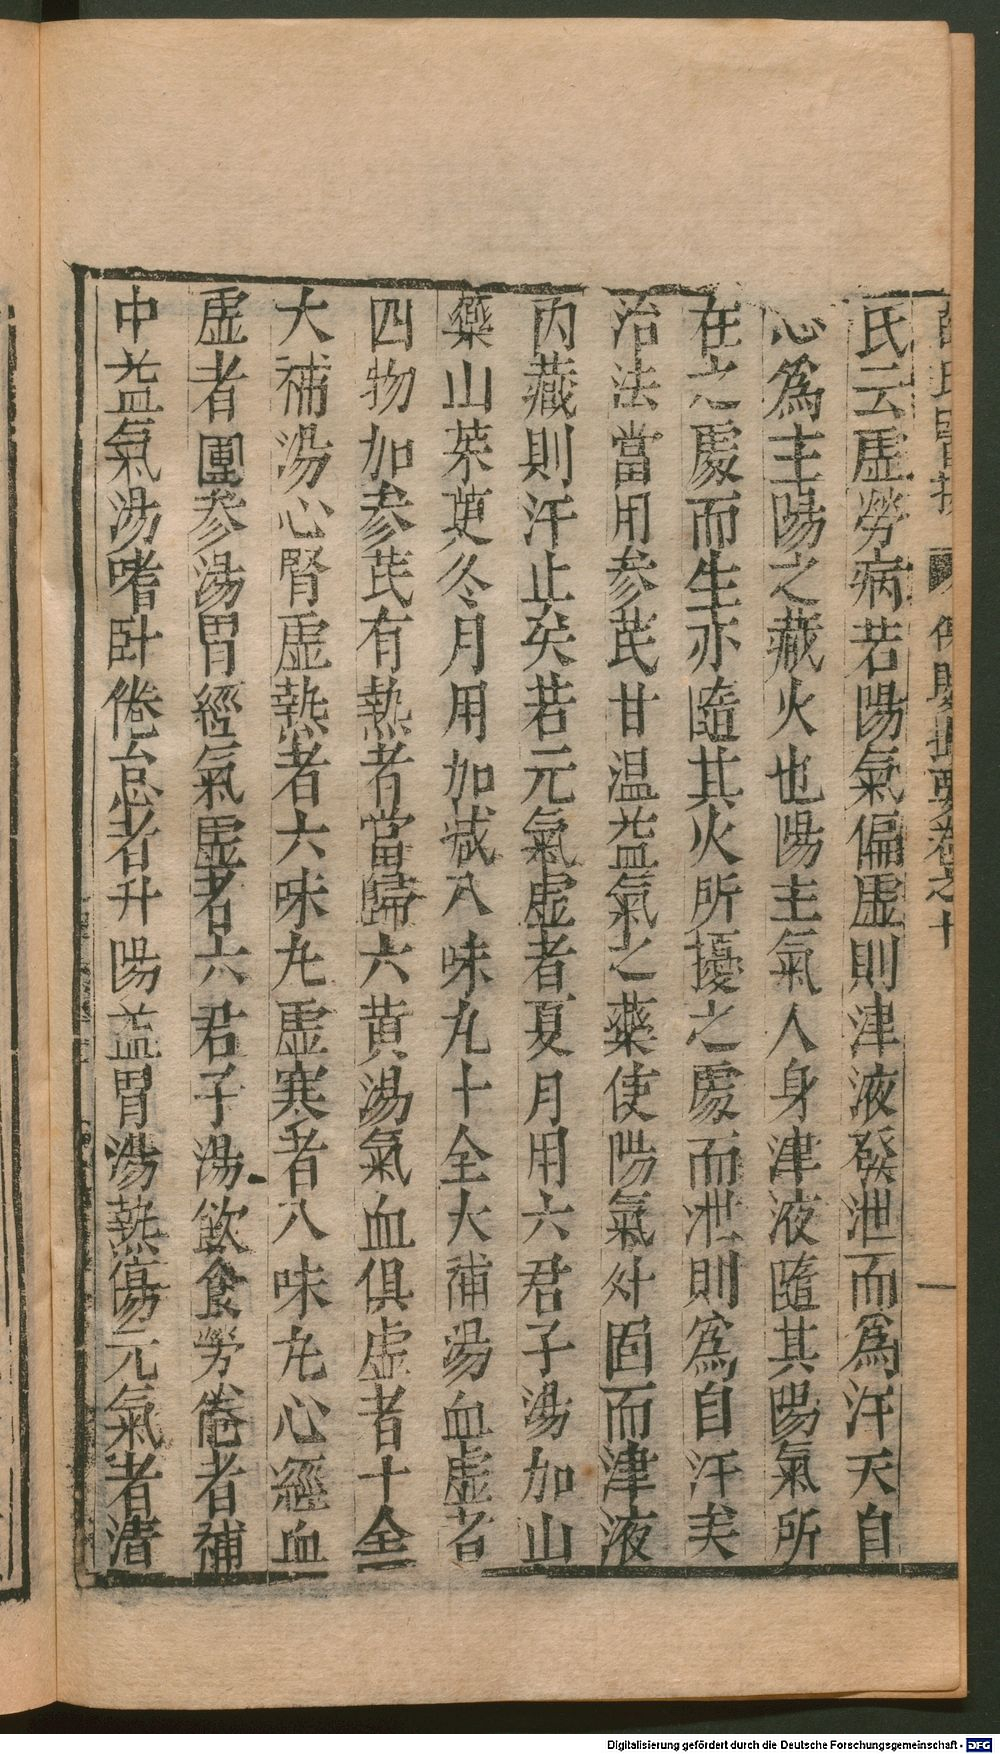 氏云虛勞病若陽氣偏虛則津液發泄而為汗夫自
心為主陽之藏火也陽主氣人身津液隨其陽氣所
在之處而生亦隨其火所擾之處而泄則為自汗矣
治法當用參芪甘温益氣之藥使陽氣外固而津液
內藏則汗止矣若元氣虛者夏月用六君子湯加山
藥山茱萸冬月用加减八味丸十全大補湯血虛者
四物加參芪有熱者當歸六黄湯氣血俱虛者十全
大補湯心腎虛熱者六味丸虛寒者八味丸心經血
虛者團參湯胃經氣虛者六君子湯飲食勞倦者補
中益氣湯嗜卧倦怠者升陽益胃湯熱傷元氣者清
保嬰撮要卷之十
一
Digitalisierung gefördert durch die Deutsche Forschungsgemeinschaft - DFG